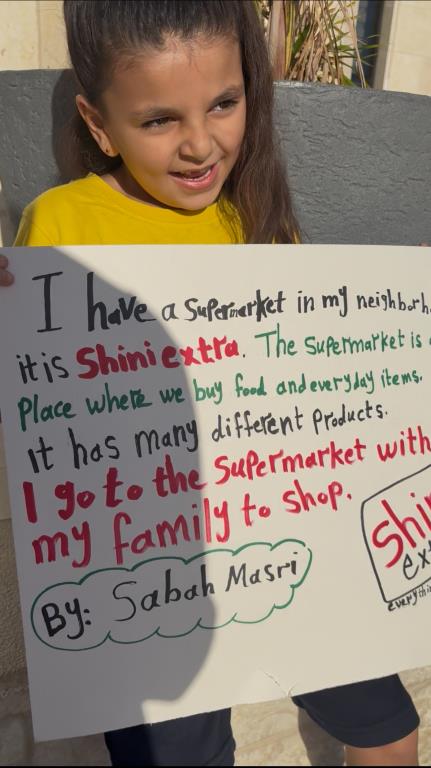 I have a supermarket in my neighborh
it is Shini extra. The supermarket is a
place where we buy food and everyday items.
it has many different products.
I go to the supermarket with
my family to shop.
By: Sabah Masri
Shi
ex
everythi